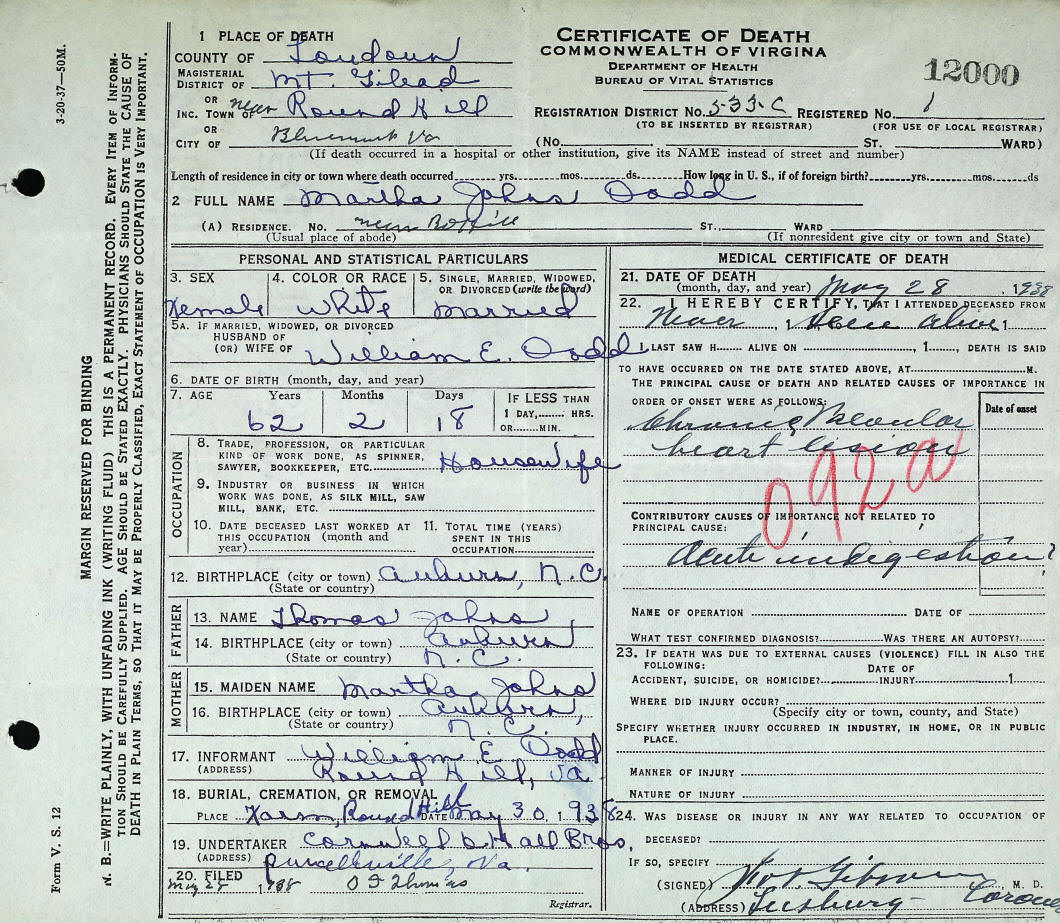 3-20-37—50M.
MARGIN RESERVED FOR BINDING
N. B.=WRITE PLAINLY, WITH UNFADING INK (WRITING FLUID) THIS IS A PERMANENT RECORD. EVERY ITEM OF INFORM-
TION SHOULD BE CAREFULLY SUPPLIED. AGE SHOULD BE STATED EXACTLY. PHYSICIANS SHOULD STATE THE CAUSE OF
DEATH IN PLAIN TERMS, SO THAT IT MAY BE PROPERLY CLASSIFIED, EXACT STATEMENT OF OCCUPATION IS VERY IMPORTANT.
Form V. S. 12
CERTIFICATE OF DEATH
COMMONWEALTH OF VIRGINA
DEPARTMENT OF HEALTH
BUREAU OF VITAL STATISTICS
12000
1 PLACE OF DEATH
COUNTY OF Loudoun
MAGISTERIAL
DISTRICT OF Mt. Gilead
OR
INC. TOWN OF near Round Hill
OR
CITY OF Bluemont Va
REGISTRATION DISTRICT NO. 533-C REGISTERED NO. 1
(TO BE INSERTED BY REGISTRAR) (FOR USE OF LOCAL REGISTRAR)
(No. ST. WARD)
(If death occurred in a hospital or other institution, give its NAME instead of street and number)
Length of residence in city or town where death occurred yrs. mos. ds. How long in U. S., if of foreign birth? yrs. mos. ds
2 FULL NAME Martha Johns Dodd
(A) RESIDENCE. NO. near Ro Hill ST., WARD
(Usual place of abode) (If nonresident give city or town and State)
PERSONAL AND STATISTICAL PARTICULARS
3. SEX 4. COLOR OR RACE 5. SINGLE, MARRIED, WIDOWED,
OR DIVORCED (write the word)
Female White Married
5A. IF MARRIED, WIDOWED, OR DIVORCED
HUSBAND OF
(OR) WIFE OF William E. Dodd
6. DATE OF BIRTH (month, day, and year)
7. AGE Years Months Days IF LESS THAN
1 DAY, HRS.
OR MIN.
62 2 18
OCCUPATION
8. TRADE, PROFESSION, OR PARTICULAR
KIND OF WORK DONE, AS SPINNER,
SAWYER, BOOKKEEPER, ETC. Housewife
9. INDUSTRY OR BUSINESS IN WHICH
WORK WAS DONE, AS SILK MILL, SAW
MILL, BANK, ETC.
10. DATE DECEASED LAST WORKED AT
THIS OCCUPATION (month and
year)
11. TOTAL TIME (YEARS)
SPENT IN THIS
OCCUPATION
12. BIRTHPLACE (city or town) Auburn, N.C.
(State or country)
FATHER
13. NAME Thomas Johns
14. BIRTHPLACE (city or town) Auburn
(State or country) N. C.
MOTHER
15. MAIDEN NAME Martha Johns
16. BIRTHPLACE (city or town) Auburn,
(State or country) N. C.
17. INFORMANT William E. Dodd
(ADDRESS) Round Hill, Va.
18. BURIAL, CREMATION, OR REMOVAL
PLACE Farm, Round Hill DATE May 30, 1938
19. UNDERTAKER Cornwell & Hall Bros,
(ADDRESS) Purcellville, Va.
20. FILED May 28 1938 O F Thomas
Registrar.
MEDICAL CERTIFICATE OF DEATH
21. DATE OF DEATH
(month, day, and year) May 28, 1938
22. I HEREBY CERTIFY, THAT I ATTENDED DECEASED FROM
Never, 1 Seen Alive 1
I LAST SAW H ALIVE ON , 1 , DEATH IS SAID
TO HAVE OCCURRED ON THE DATE STATED ABOVE, AT M.
THE PRINCIPAL CAUSE OF DEATH AND RELATED CAUSES OF IMPORTANCE IN
ORDER OF ONSET WERE AS FOLLOWS:
Date of onset
Chronic
heart lesion
092a
CONTRIBUTORY CAUSES OF IMPORTANCE NOT RELATED TO
PRINCIPAL CAUSE:
Acute indigestion?
NAME OF OPERATION DATE OF
WHAT TEST CONFIRMED DIAGNOSIS? WAS THERE AN AUTOPSY?
23. IF DEATH WAS DUE TO EXTERNAL CAUSES (VIOLENCE) FILL IN ALSO THE
FOLLOWING: DATE OF
ACCIDENT, SUICIDE, OR HOMICIDE? INJURY 1
WHERE DID INJURY OCCUR?
(Specify city or town, county, and State)
SPECIFY WHETHER INJURY OCCURRED IN INDUSTRY, IN HOME, OR IN PUBLIC
PLACE.
MANNER OF INJURY
NATURE OF INJURY
24. WAS DISEASE OR INJURY IN ANY WAY RELATED TO OCCUPATION OF
DECEASED?
IF SO, SPECIFY
(SIGNED) Gibson, M. D.
(ADDRESS) Leesburg Coroner